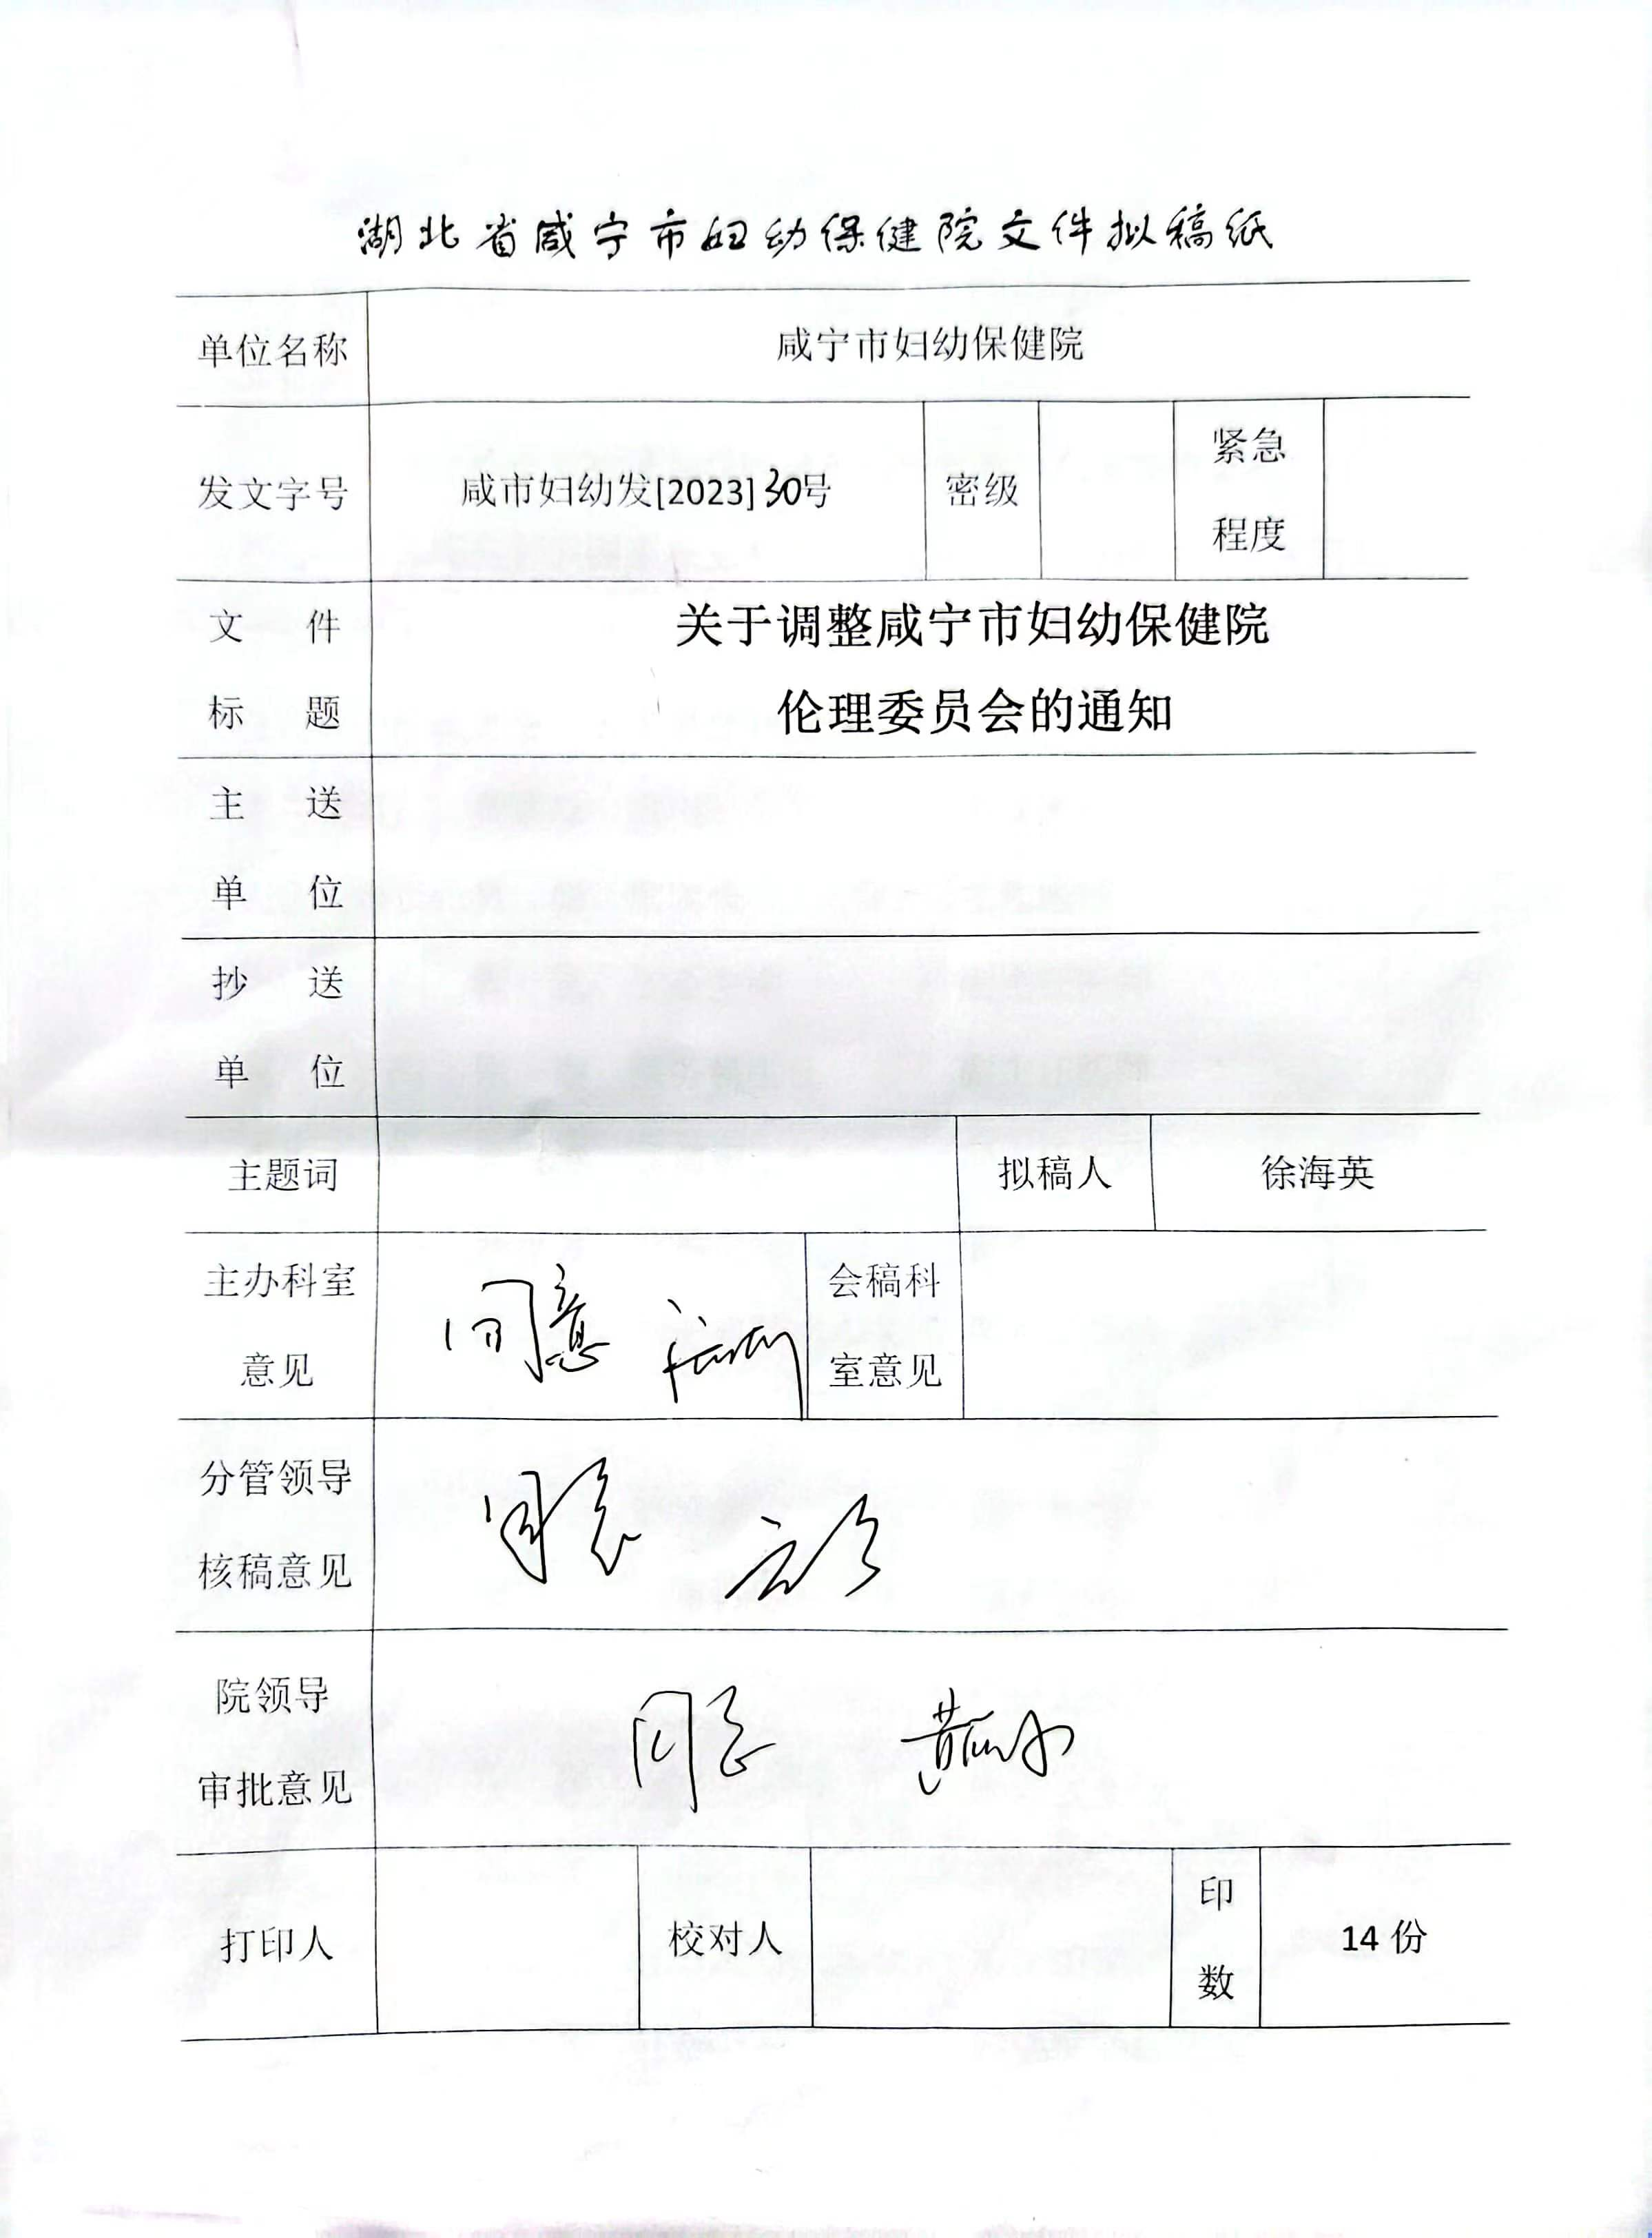 湖北省咸宁市妇幼保健院文件拟稿纸
单位名称 咸宁市妇幼保健院
发文字号 咸市妇幼发[2023]30号 密级 紧急
程度
文件 关于调整咸宁市妇幼保健院
标题 伦理委员会的通知
主送
单位
抄送
单位
主题词 拟稿人 徐海英
主办科室 同意 会稿科
意见 室意见
分管领导 同意
核稿意见
院领导 同意
审批意见
打印人 校对人 印
数 14份